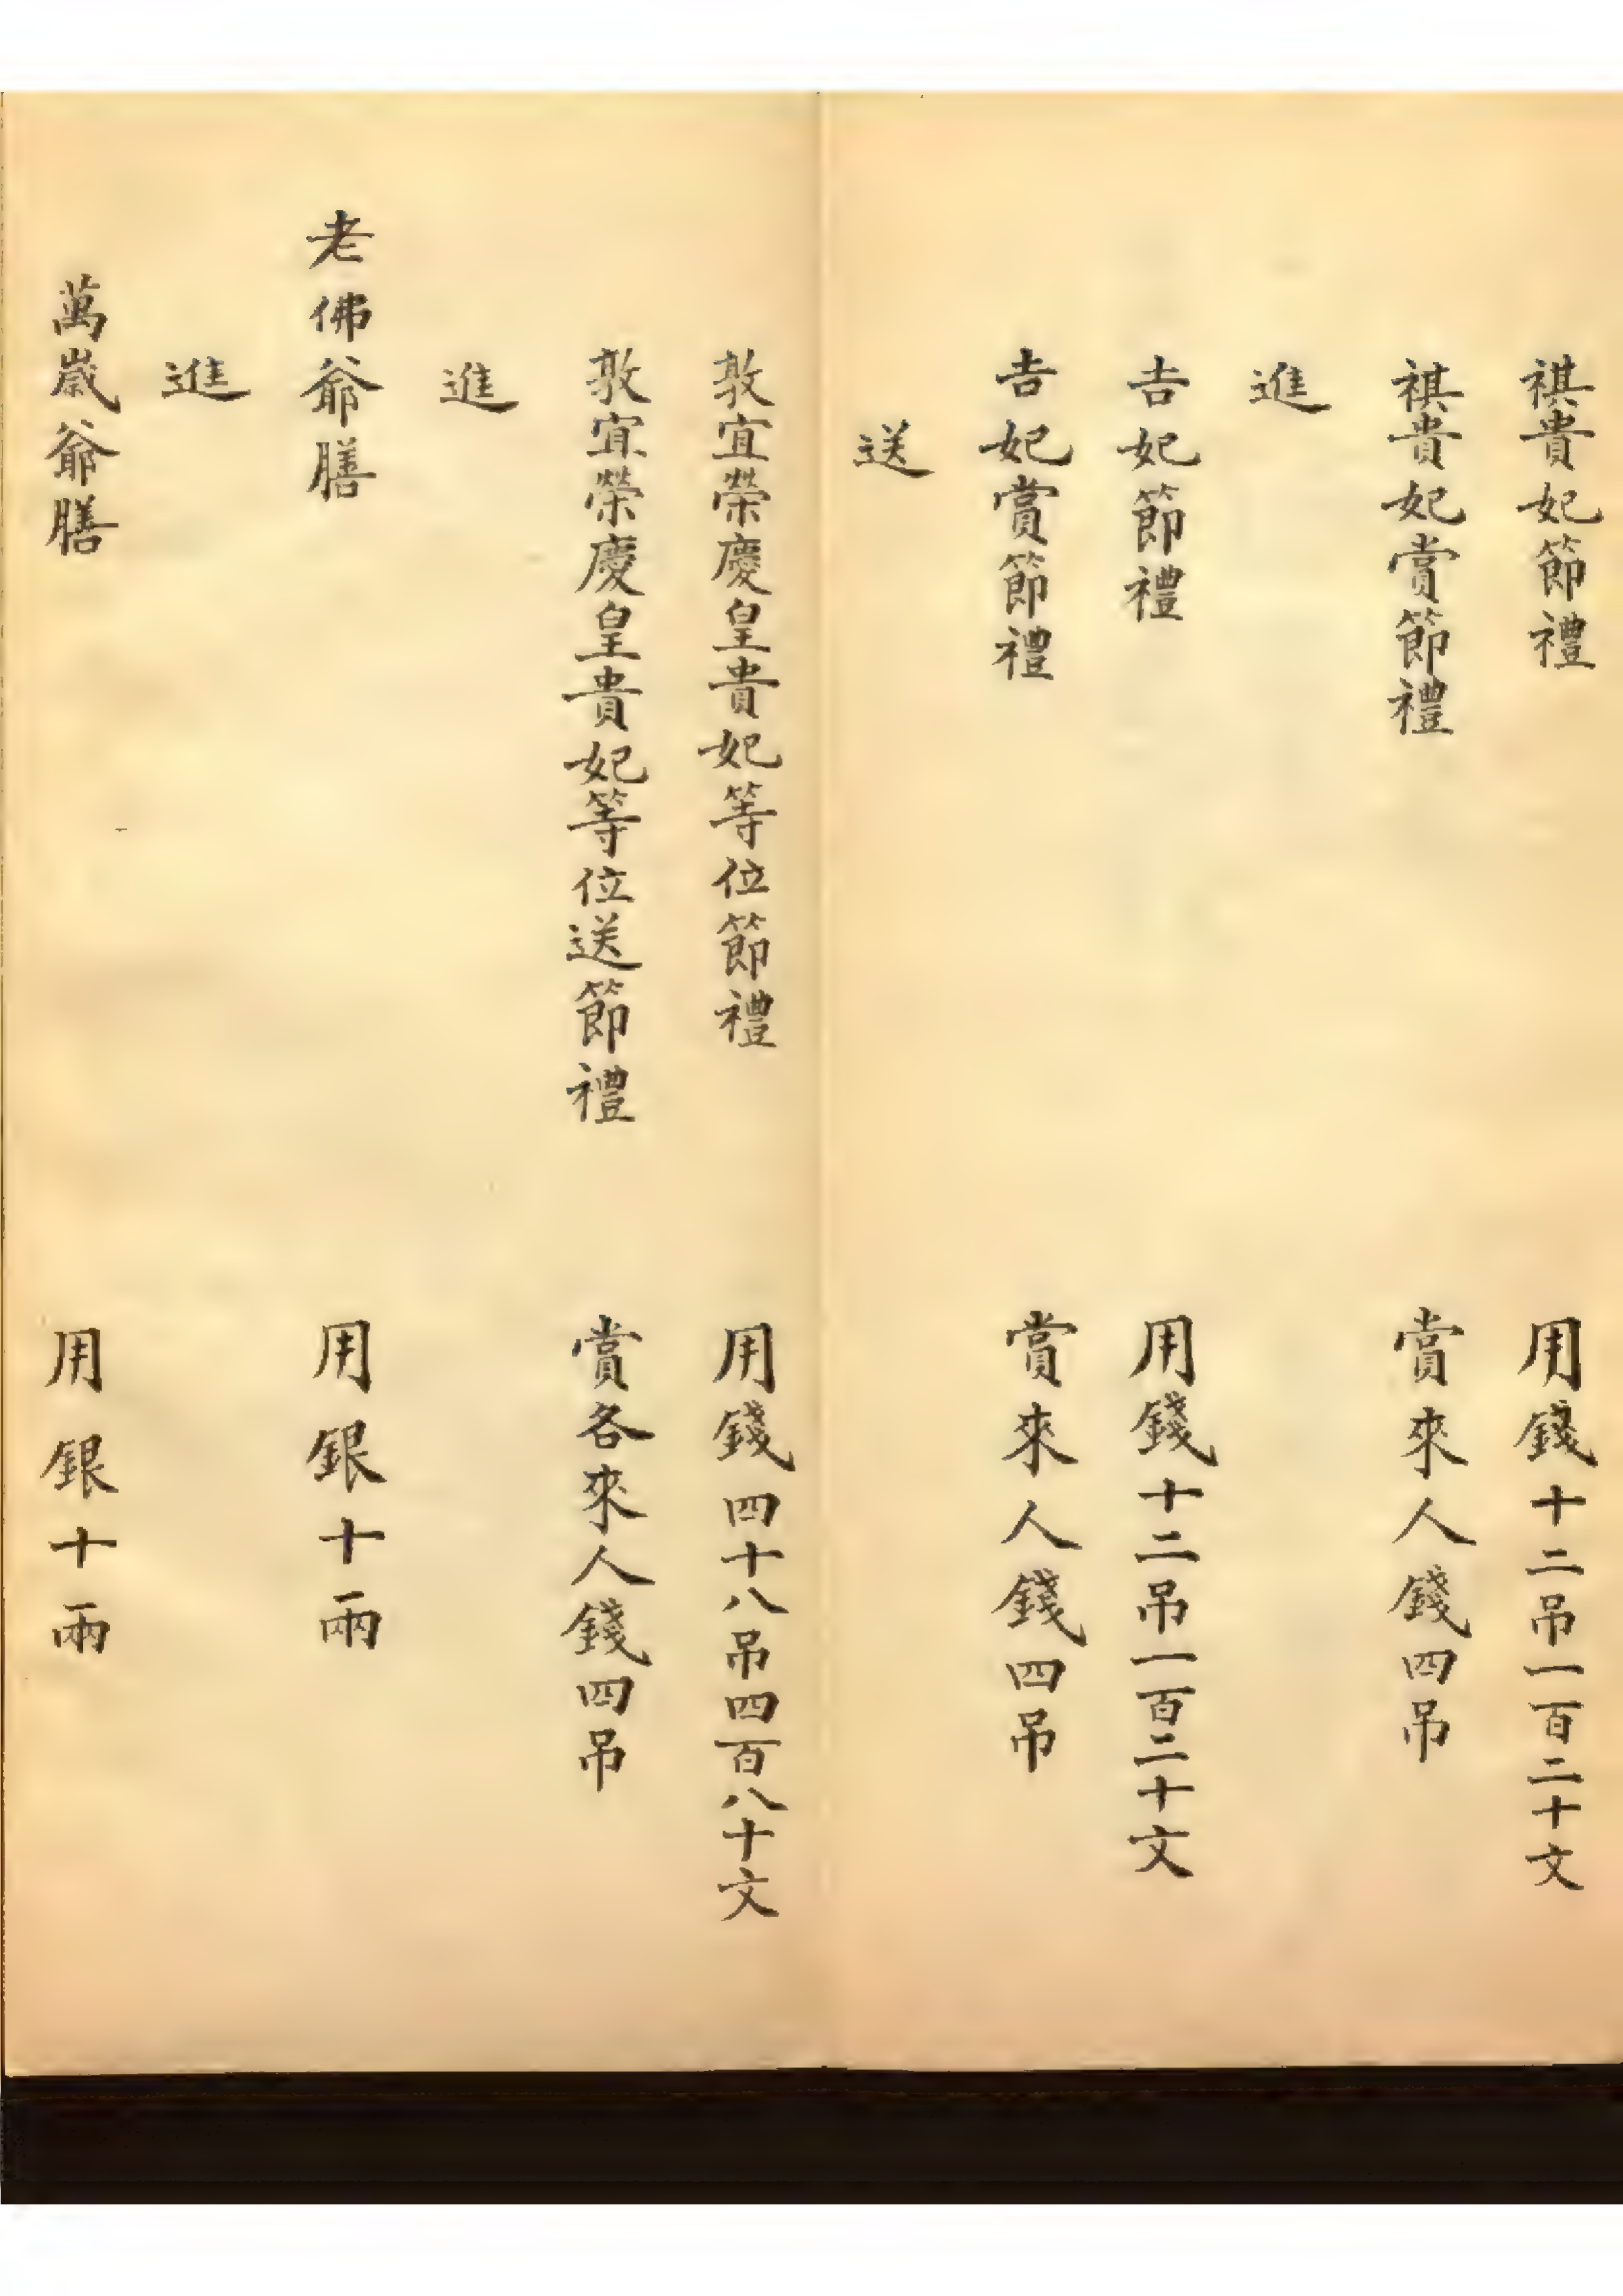 祺貴妃節禮　用錢十二吊一百二十文
祺貴妃賞節禮　賞來人錢四吊
進
吉妃節禮　用錢十二吊一百二十文
吉妃賞節禮　賞來人錢四吊
送
敦宜榮慶皇貴妃等位節禮　用錢四十八吊四百八十文
敦宜榮慶皇貴妃等位送節禮　賞各來人錢四吊
進
老佛爺膳　用銀十兩
進
萬歲爺膳　用銀十兩